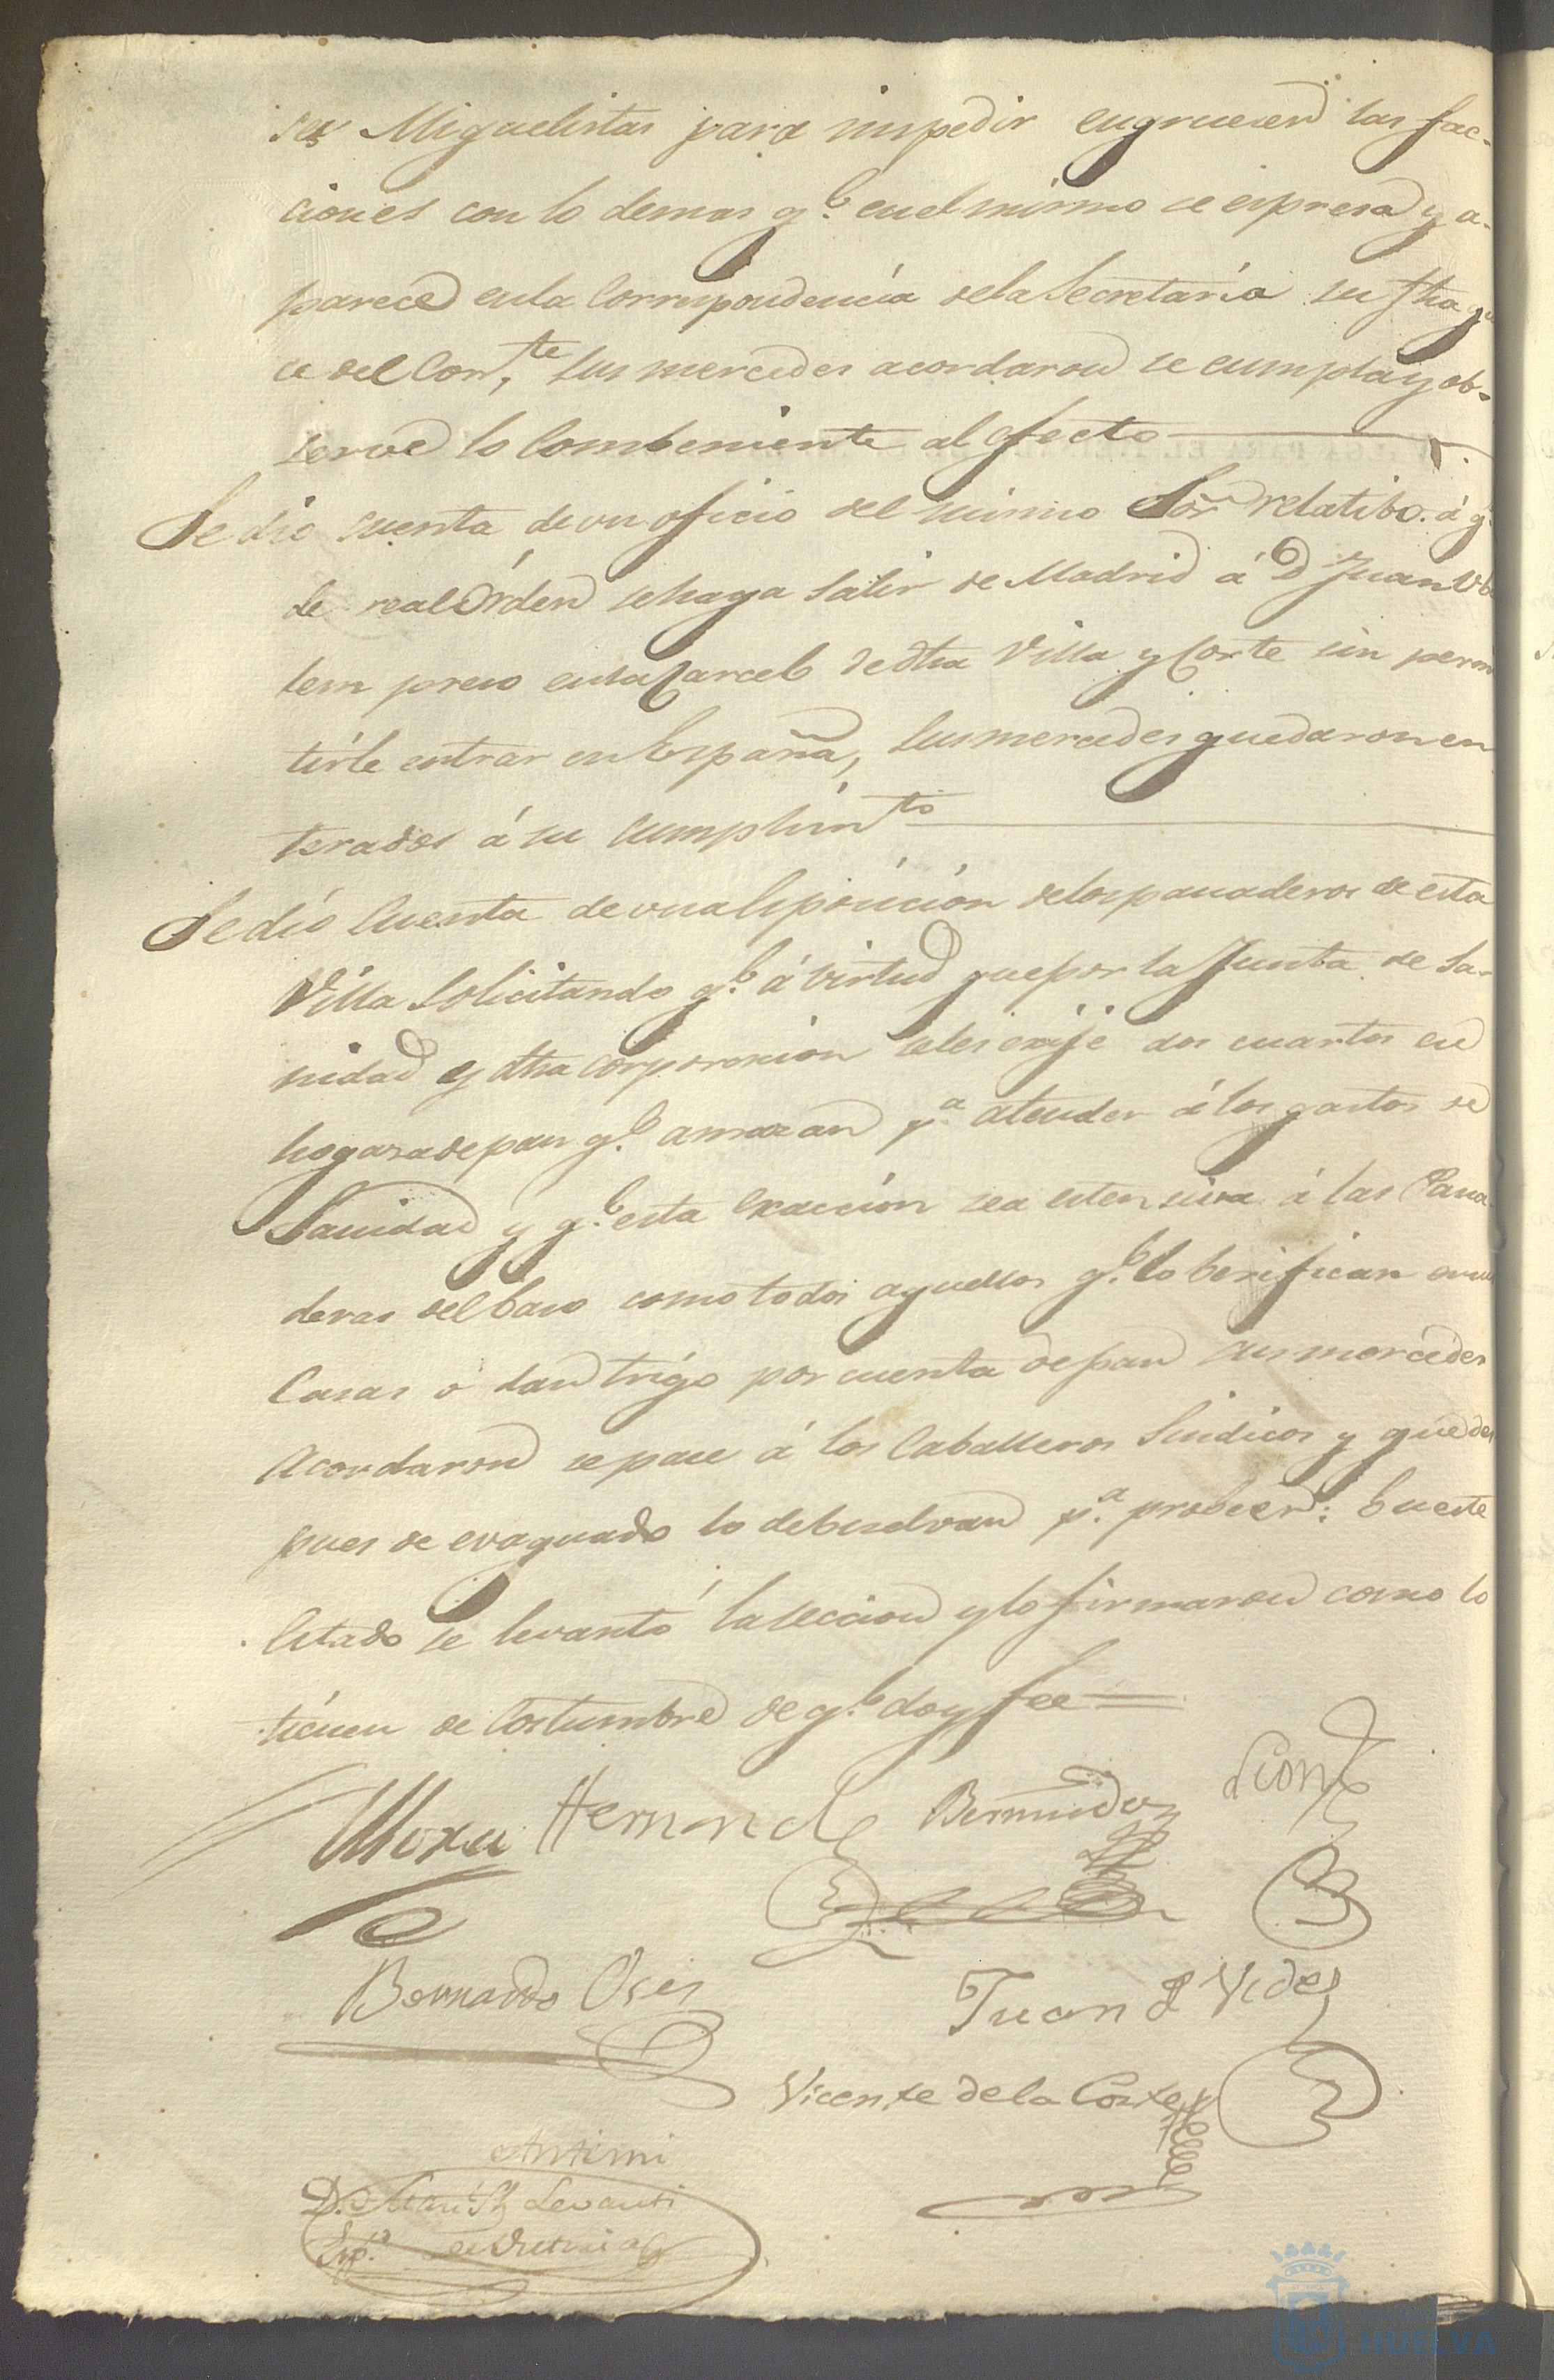 ses Miguelistas para impedir engruesen las fac-
ciones con lo demas q.e en el mismo se espresa y a-
parece en la Correspondencia de la Secretaría su fha qu
ce del Corr.te Sus mercedes acordaron se cumpla y ob-
serve lo Combeniente al efecto
Se dio cuenta de un oficio del mismo Sor relatibo á q
de real Orden se haga Salir de Madrid á D Juan Vb
lem preso en la Carcel de dha Villa y Corte sin permi
tirle entrar en España, Sus mercedes quedaron en
terados á su cumplim.to
Se dió Cuenta de una Esposicion de los panaderos de esta
Villa Solicitando q.e á virtud que por la Junta de Sa-
nidad y dha corporacion se les exije dos cuartos en
hogaza de pan q.e amazan p.a atender á los gastos de
Sanidad y q.e esta Exaccion sea estensiva á las Pana
deras del baso como todos aquellos q.e lo berifican en sus
Casas o dan trigo por cuenta de pan Sus mercedes
Acordaron se pase á los Caballeros Sindicos y que des
pues de evaquado lo debuelvan p.a probeer: En este
Estado se levantó la seccion y lo firmaron como lo
tienen de Costumbre de q.e doy fee
Mora Hernandz Bermudez
Bernardo Oses Juan J Vides
Vicente de la Corte
Ante mi
D. Levanti
HUELVA